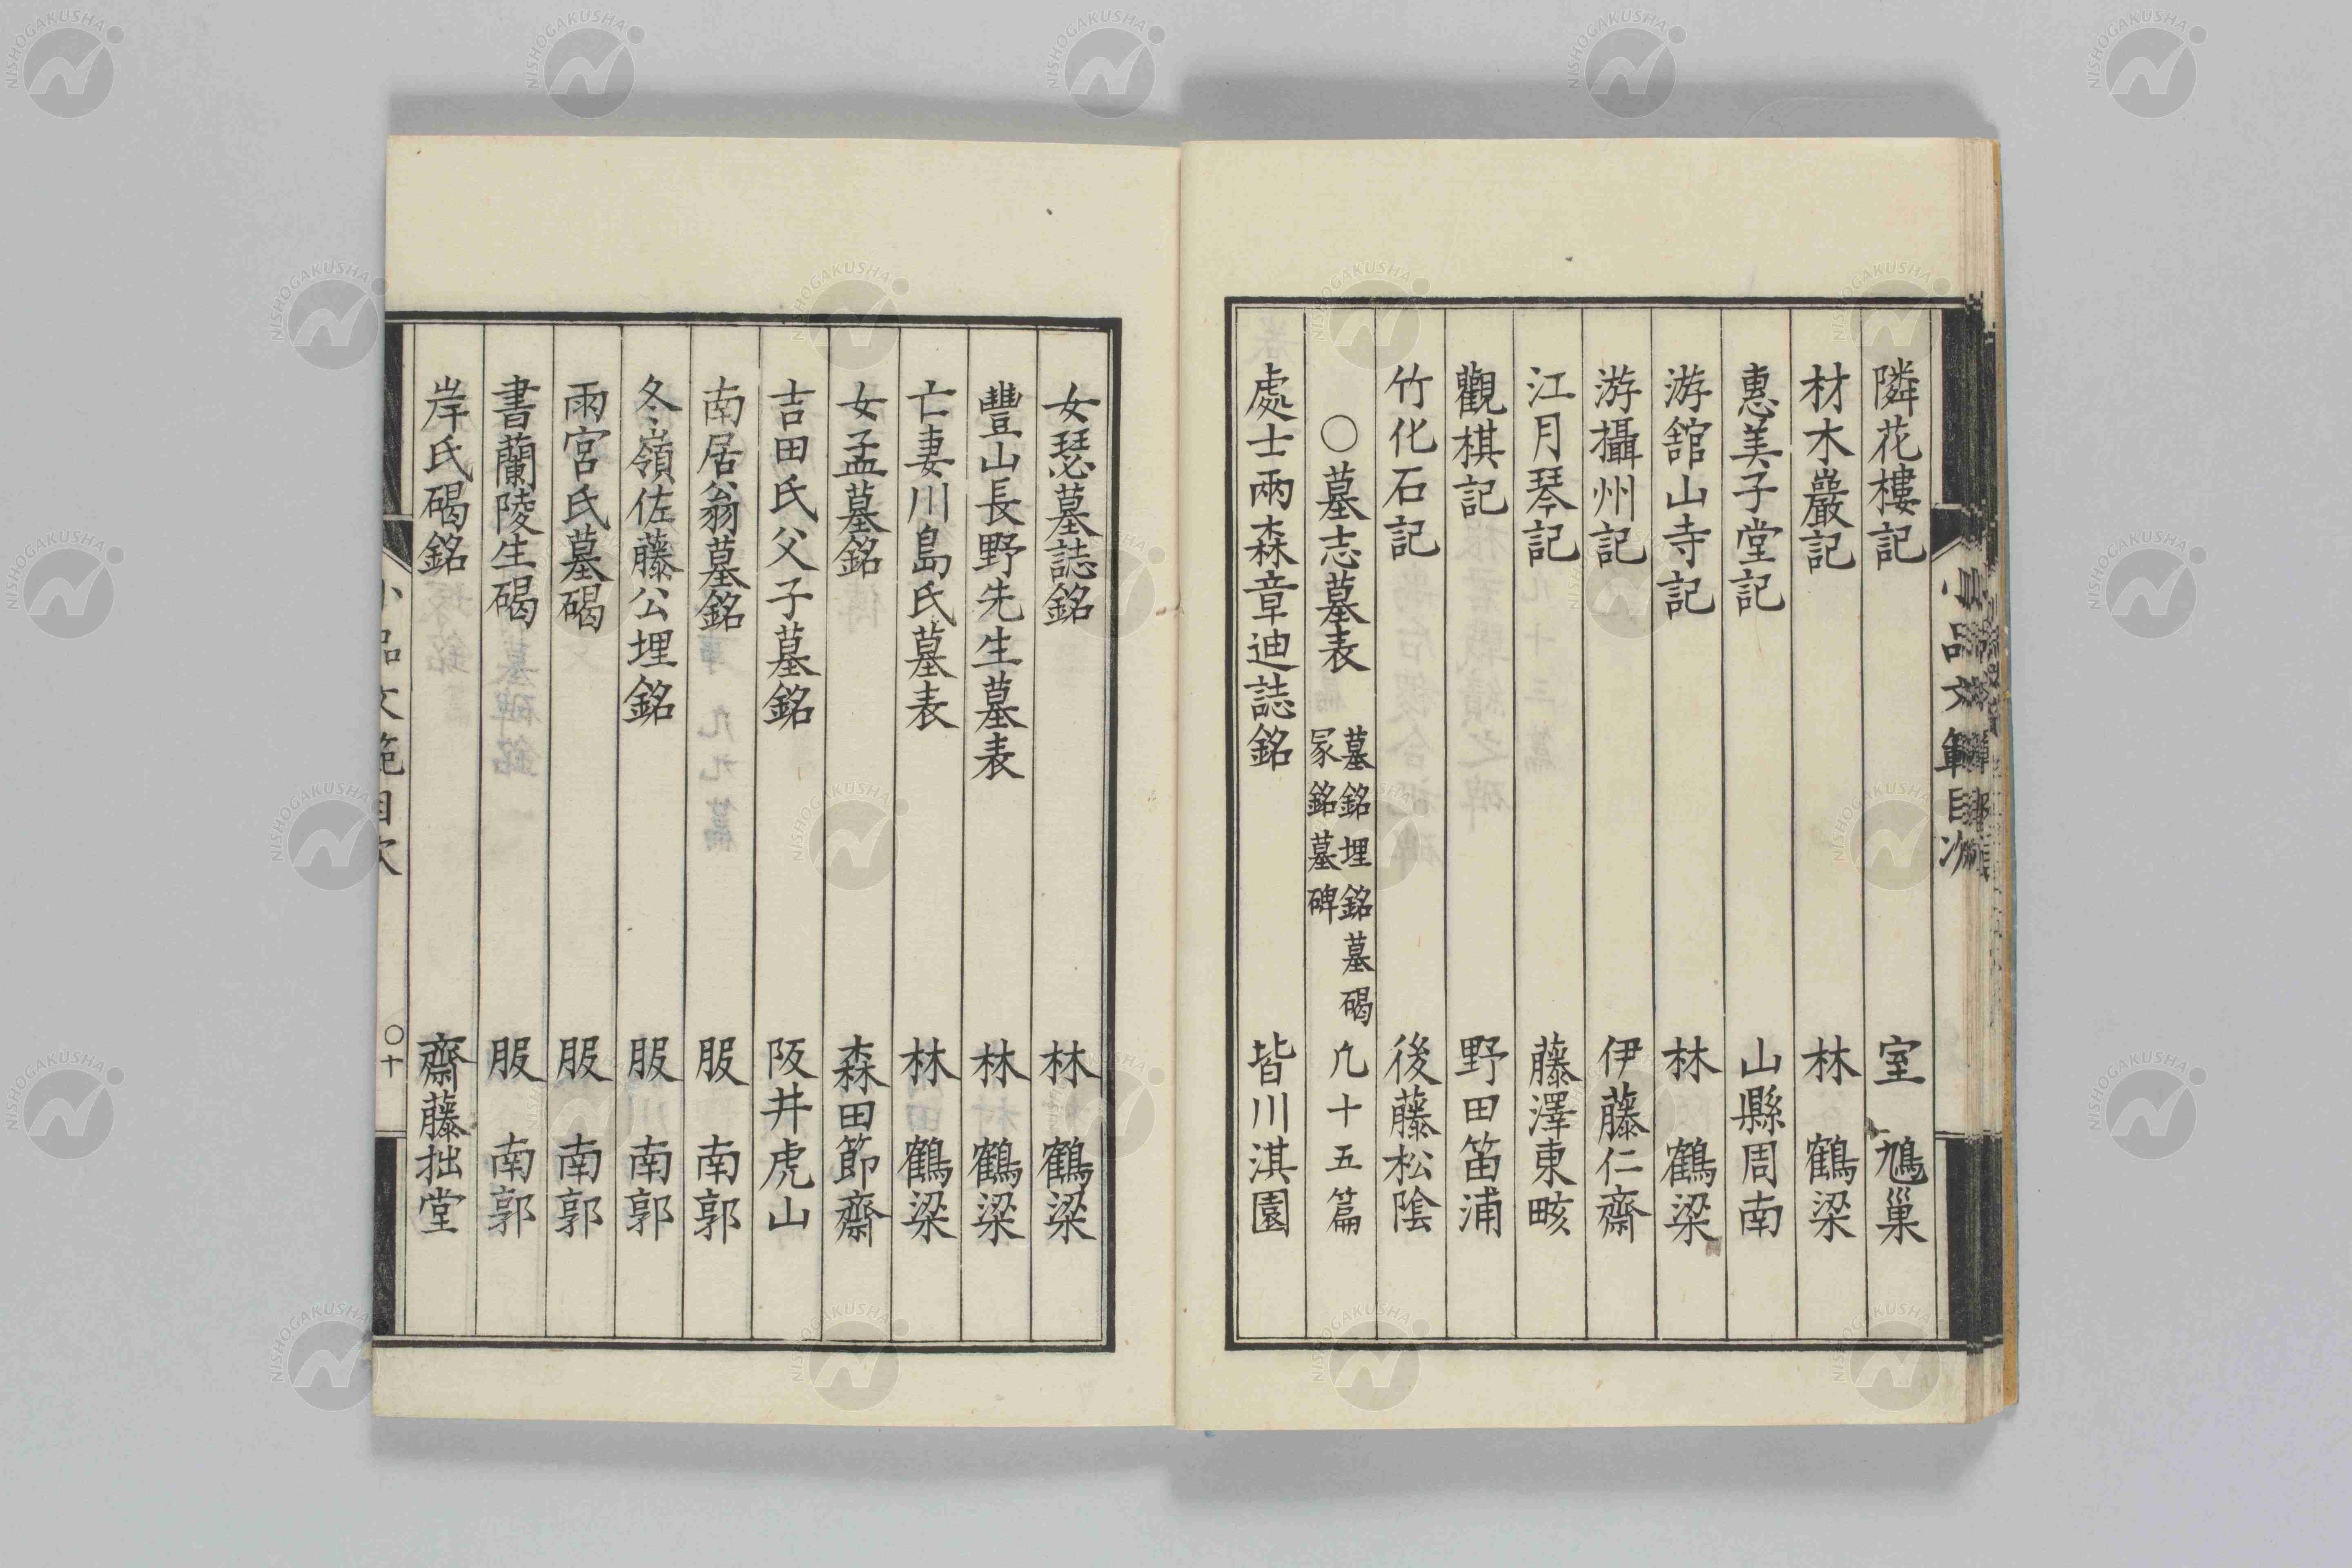 隣花樓記 室鳩巢
材木巖記 林鶴梁
惠美子堂記 山縣周南
游舘山寺記 林鶴梁
游攝州記 伊藤仁齋
江月琴記 藤澤東畡
觀棋記 野田笛浦
竹化石記 後藤松陰
○墓志墓表 墓銘埋銘墓碣冢銘墓碑 凡十五篇
處士兩森章迪誌銘 皆川淇園
女瑟墓誌銘 林鶴梁
豐山長野先生墓表 林鶴梁
亡妻川島氏墓表 林鶴梁
女孟墓銘 森田節齋
吉田氏父子墓銘 阪井虎山
南居翁墓銘 服南郭
冬嶺佐藤公埋銘 服南郭
雨宮氏墓碣 服南郭
書蘭陵生碣 服南郭
岸氏碣銘 齋藤拙堂
小品文範目次 ○十
NISHOGAKUSHA